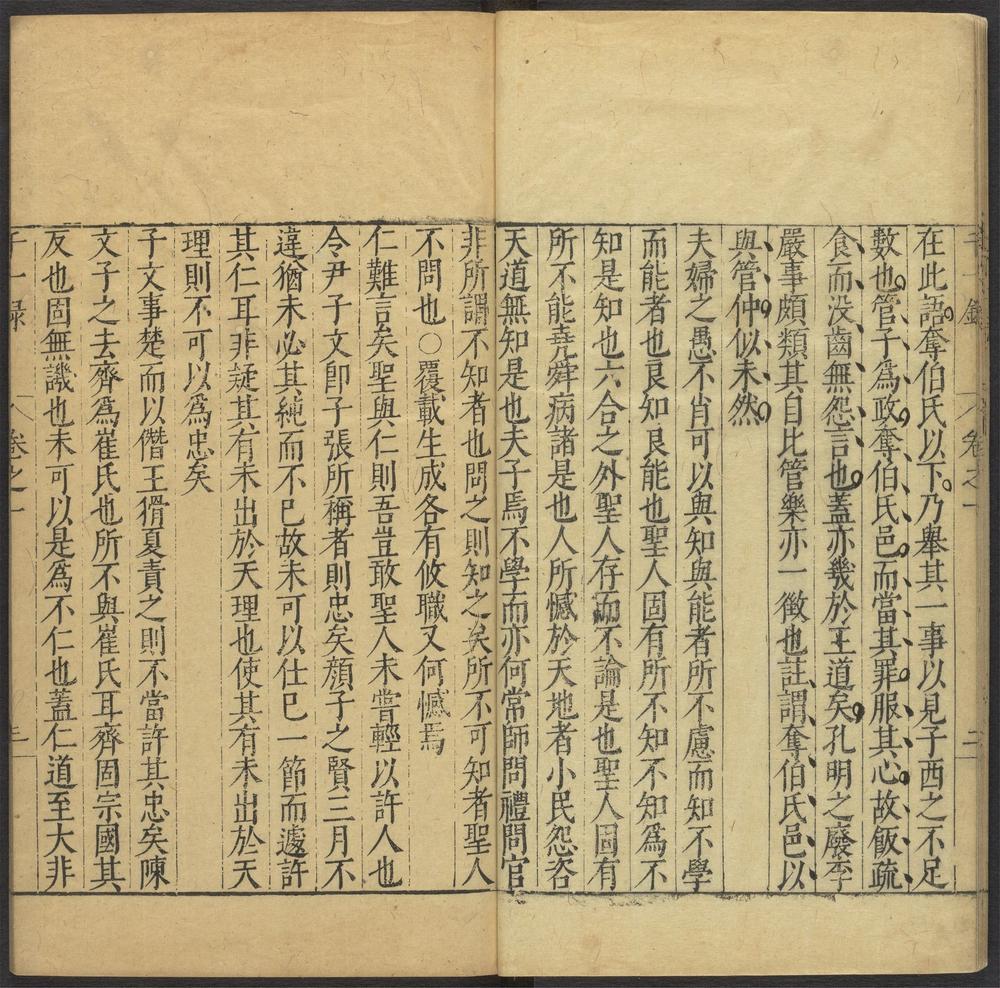 子一錄 卷之一 二
在此語奪伯氏以下乃舉其一事以見子西之不足
數也管子為政奪伯氏邑而當其罪服其心故飯疏
食而没齒無怨言也蓋亦幾於王道矣孔明之廢李
嚴事頗類其自比管樂亦一徴也註謂奪伯氏邑以
與管仲似未然
夫婦之愚不肖可以與知與能者所不慮而知不學
而能者也良知良能也聖人固有所不知不知為不
知是知也六合之外聖人存而不論是也聖人固有
所不能堯舜病諸是也人所憾於天地者小民怨咨
天道無知是也夫子焉不學而亦何常師問禮問官
非所謂不知者也問之則知之矣所不可知者聖人
不問也○覆載生成各有攸職又何憾焉
仁難言矣聖與仁則吾豈敢聖人未嘗輕以許人也
令尹子文卽子張所稱者則忠矣顔子之賢三月不
違猶未必其純而不已故未可以仕已一節而遽許
其仁耳非疑其有未出於天理也使其有未出於天
理則不可以為忠矣
子文事楚而以僭王猾夏責之則不當許其忠矣陳
文子之去齊為崔氏也所不與崔氏耳齊固宗國其
反也固無譏也未可以是為不仁也蓋仁道至大非
子一錄 卷之一 三